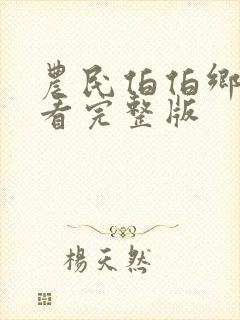 農民伯伯鄉
看完整版
楊天然